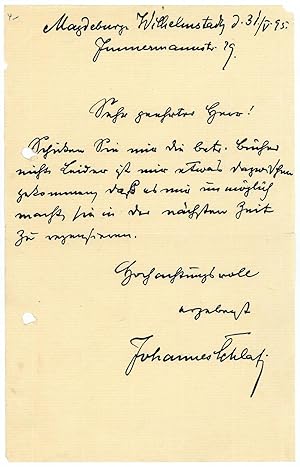 Magdeburg Wilhelmstadt, d. 31/V 95.
Immermannstr. 29.
Sehr geehrter Herr!
Schicken Sie mir die betr. Bücher
nicht. Leider ist mir etwas dazwischen
gekommen, daß es mir unmöglich
macht, sie in der nächsten Zeit
zu rezensieren.
Hochachtungsvoll
ergebenst
Johannes Schlaf.